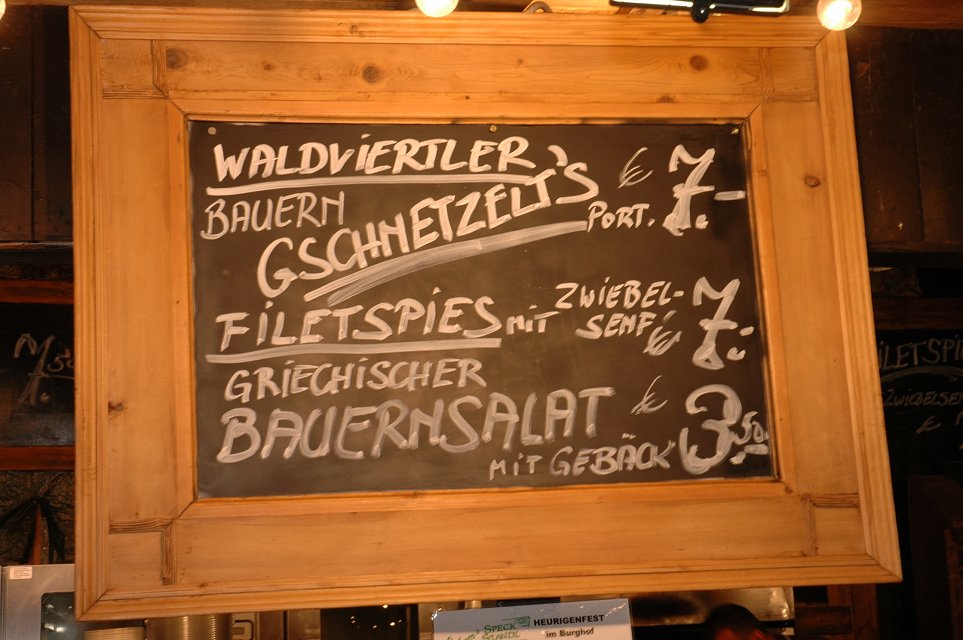 WALDVIERTLER
BAUERN
GSCHNETZELT'S € 7.-
PORT.
FILETSPIES MIT ZWIEBEL-
SENF € 7.-
GRIECHISCHER
BAUERNSALAT € 3.50
MIT GEBÄCK
7.50
FILETSPI
ZWIEBELSE
€
SPECK
STANDL
HEURIGENFEST
im Burghof